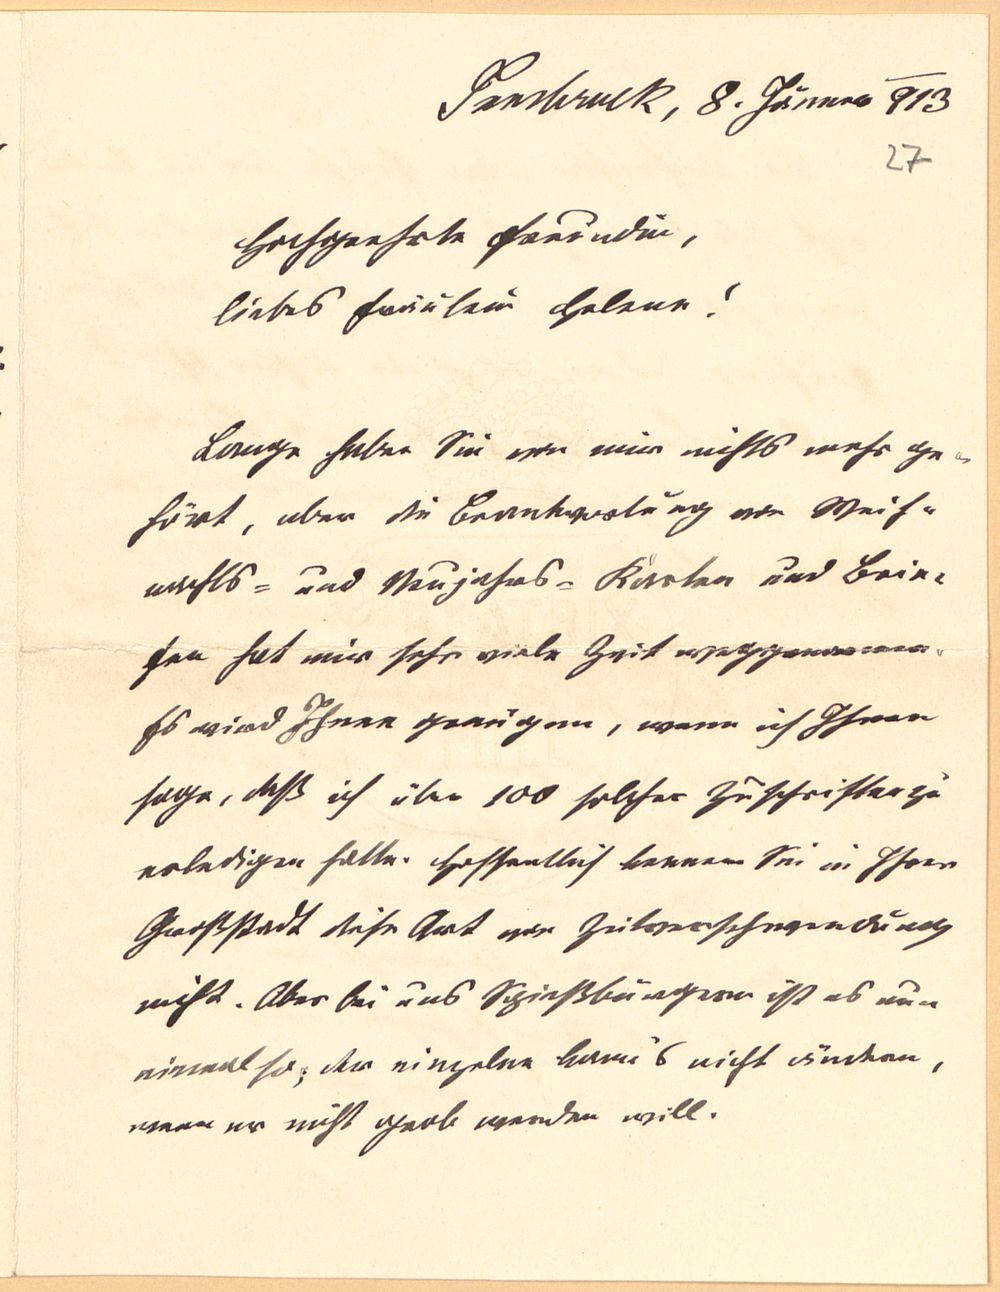 Innsbruck, 8. Jänner 913
27
Hochgeehrte Freundin,
liebes Fräulein Helene!
Lange haben Sie von mir nichts mehr ge-
hört, aber die Beantwortung von Weih-
nachts- und Neujahrs- Karten und Brie-
fen hat mir sehr viele Zeit weggenommen.
Es wird Ihnen genügen, wenn ich Ihnen
sage, daß ich über 100 solcher Zuschriften zu
erledigen hatte. Hoffentlich kennen Sie in Ihrer
Großstadt diese Art von Zeitverschwendung
nicht. Aber bei uns Spießbürgern ist es nun
einmal so; der einzelne kann's nicht ändern,
wenn er nicht grob werden will.